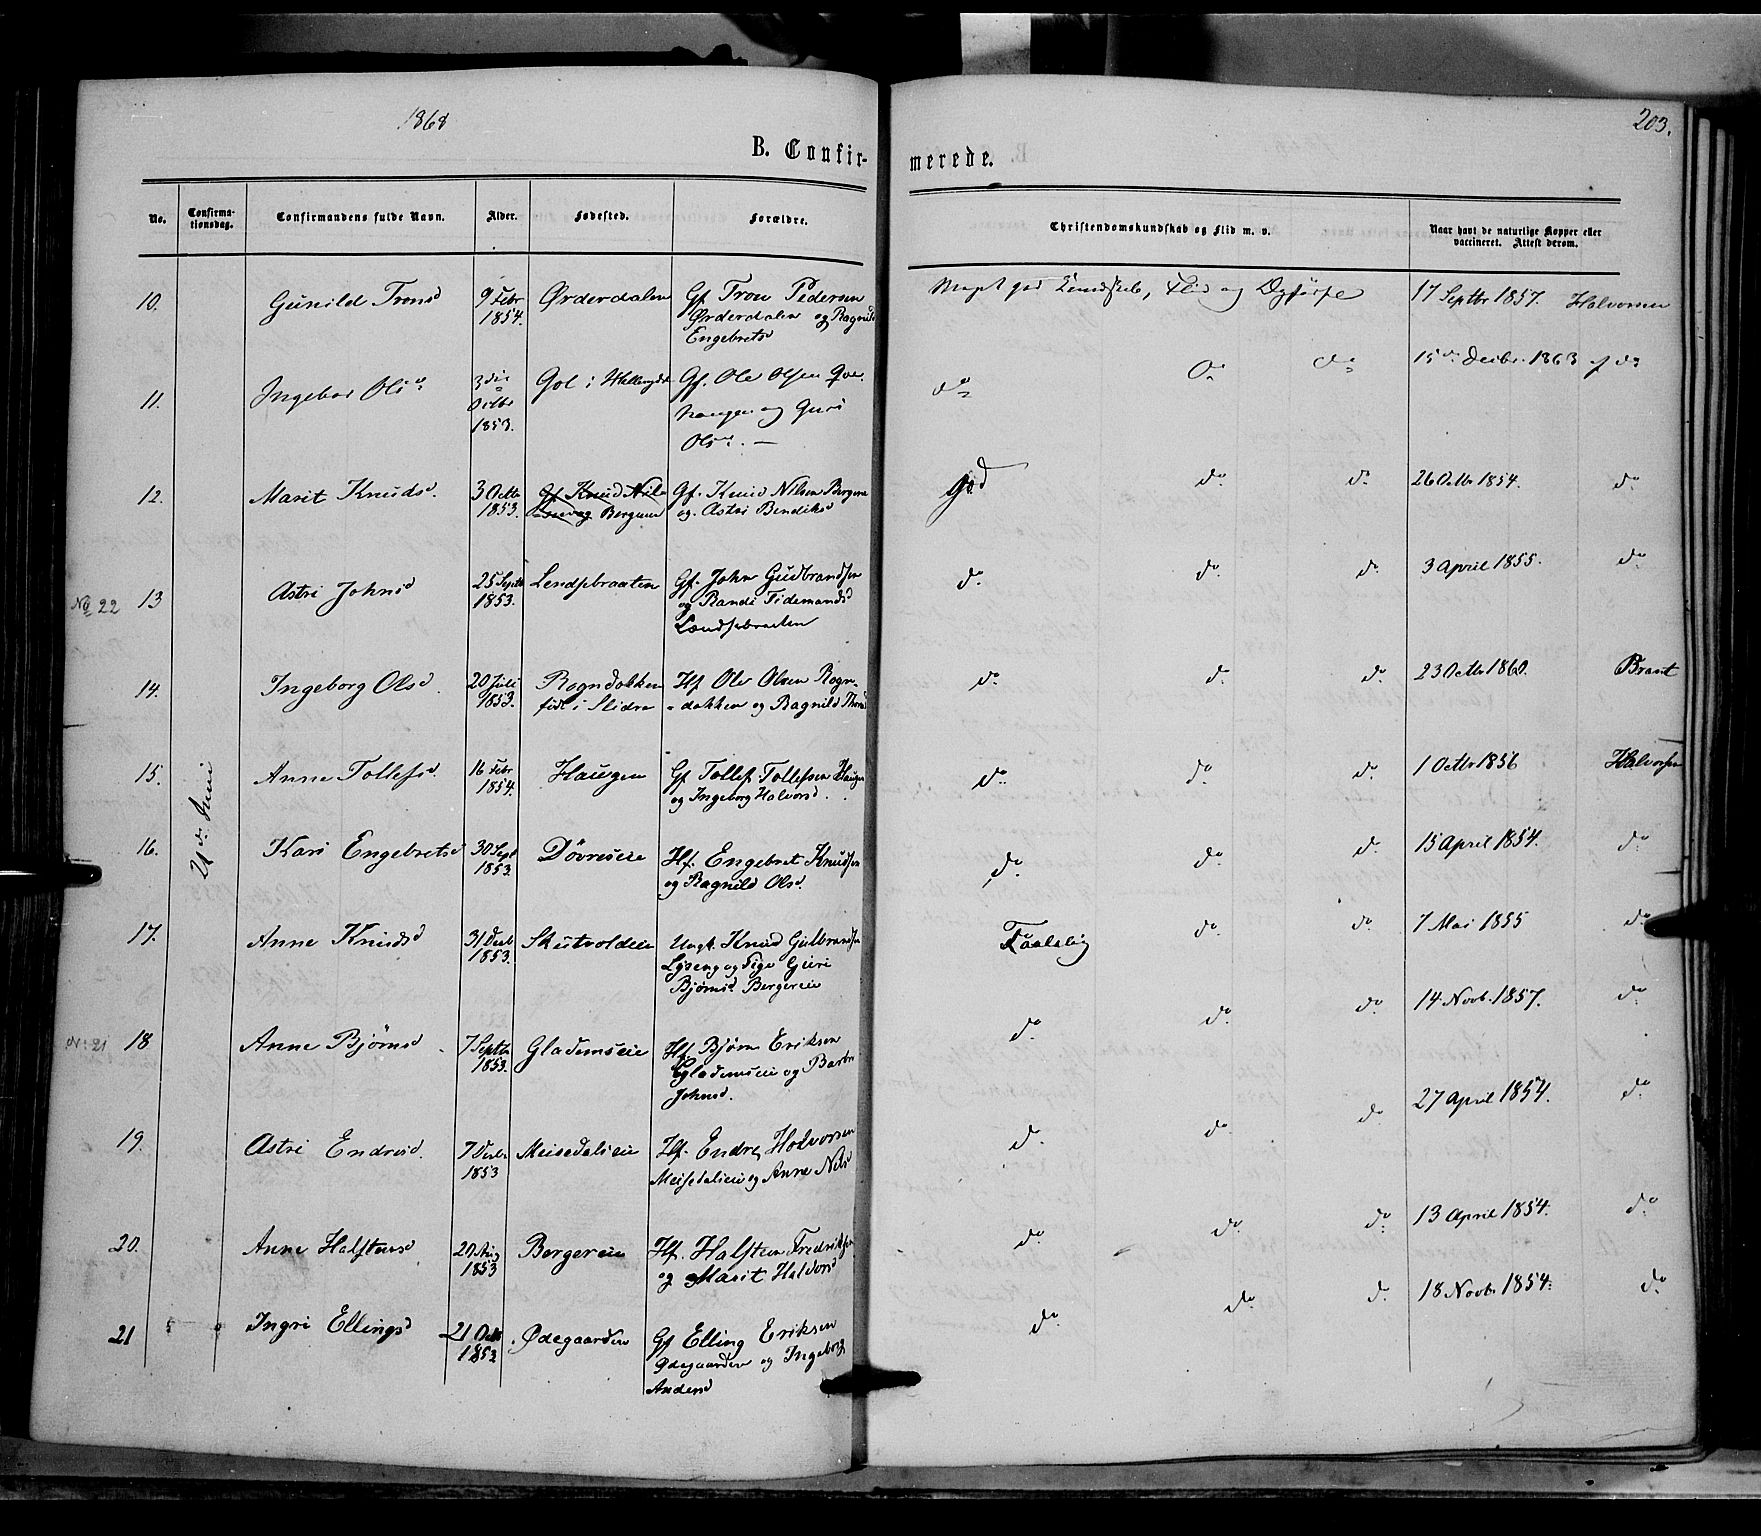 1868
203.
B. Confirmerede.
No. Confirmationsdag. Confirmandens fulde Navn. Alder. Fødested. Forældre. Christendomskundskab og Flid m. v. Naar havt de naturlige Kopper eller vaccineret. Attest derom.
21de Juni
10. Gunild Tronsd 9 Febr 1854. Ørderdalen Gf. Tron Pedersen Ørderdalen og Ragnild Engebretsd Meget god Kundskab, Flid og Opførsel 17 Septbr 1857. Halvorsen
11. Ingebor Olsd 3die 1853. Gol i Hallingdal Gf. Ole Olsen og Guri Olsd. — do do do 15de Decbr. 1863 af do
12. Marit Knudsd. 3 Octb 1853. Gf Knud Nils Bergene Gf. Knud Nilsen Bergene og Astri Bendiksd god do do 26 Octbr 1854. do
No 22 13 Astri Johnsd 25 Septb 1853. Lendsebraaten Gf. John Gudbrandsen og Randi Tidemandsd Lendsebraaten do do do 3 April 1855. do
14. Ingeborg Olsd. 20 Juli 1853. Rogndokken født i Slidre Hf Ole Olsen Rogndokken og Ragnild Thorsd do do do 23 Octbr 1860. Brant
15. Anne Tollefsd. 16 Febr 1854. Haugen Gf Tollef Tollefsen Haugen og Ingeborg Halvorsd. do do do 1 Octbr 1856 Halvorsen
16. Kari Engebretsd 30 Sept 1853. Døvreseie Hf. Engebret Knudsen og Ragnild Olsd. do do do 15 April 1854. do
17. Anne Knudsd 31 Decb 1853. Skutvoldeie Ungk. Knud Gulbrandsen og Pige Guri Bjørnsd. Bergereie Taalelig do do 7 Mai 1855 do
No. 21 18 Anne Bjørnsd. 7 Septb 1853. Glademseie Hf. Bjørn Eriksen Glademseie og Johnsd. do do do 14 Novb. 1857. do
19. Astri Endresd. 7 Decbr 1853 Meisedalseie Hf. Endre Halvorsen Meisedalseie og Anne Nilsd do do do 27 April 1854. do
20. Anne Halstensd 20 Aug 1853 Bergereie Hf. Halsten Fredriksen og Marit Halvorsd do do do 13 April 1854. do
21 Ingri Ellingsd 21 Octb 1853 Ødegaarden Gf Elling Eriksen Ødegaarden og Ingeborg Andersd do do do 18 Novb. 1854. do